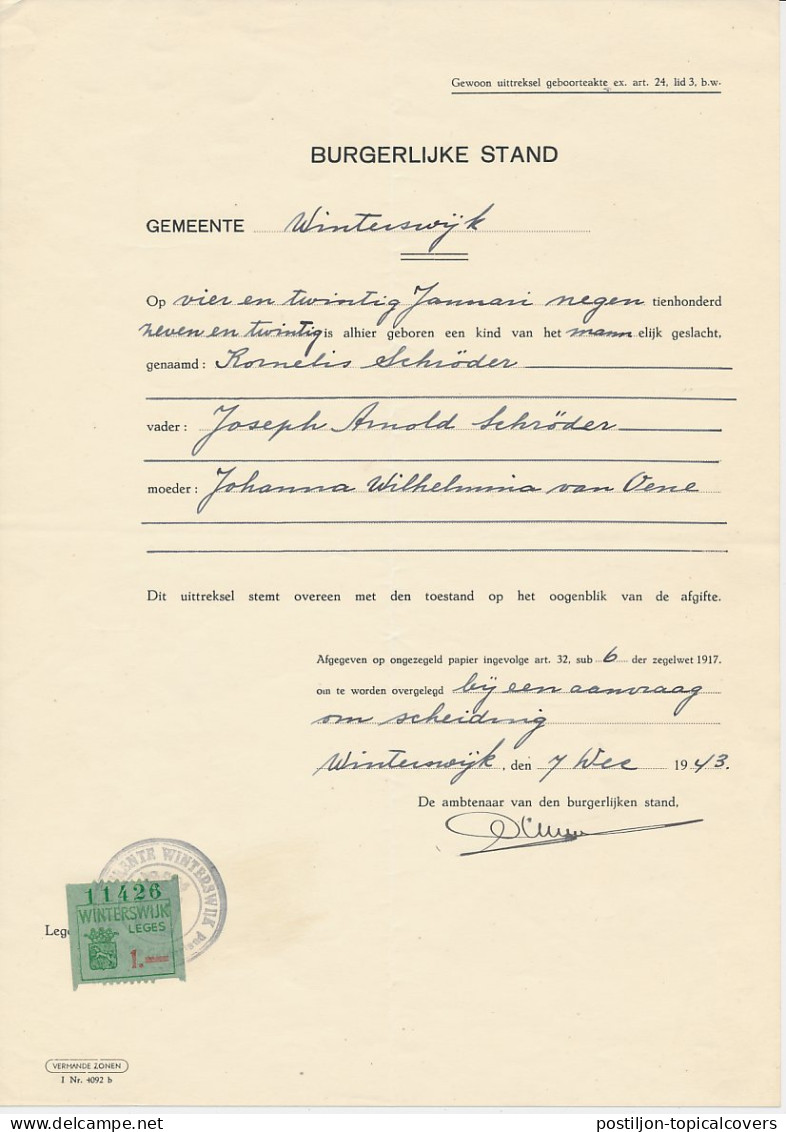 Gewoon uittreksel geboorteakte ex. art. 24, lid 3, b.w.
BURGERLIJKE STAND
GEMEENTE Winterswijk
Op vier en twintig Januari negen tienhonderd
zeven en twintig is alhier geboren een kind van het mannelijk geslacht,
genaamd: Kornelis Schröder
vader: Joseph Arnold Schröder
moeder: Johanna Wilhelmina van Oene
Dit uittreksel stemt overeen met den toestand op het oogenblik van de afgifte.
Afgegeven op ongezegeld papier ingevolge art. 32, sub 6 der zegelwet 1917.
om te worden overgelegd bij een aanvraag
om scheiding
Winterswijk, den 7 Dec 1943.
De ambtenaar van den burgerlijken stand,
GEMEENTE WINTERSWIJK
11426
WINTERSWIJK
LEGES
1.—
Lege
VERMANDE ZONEN
I Nr. 4092 b
postiljon-topicalcovers